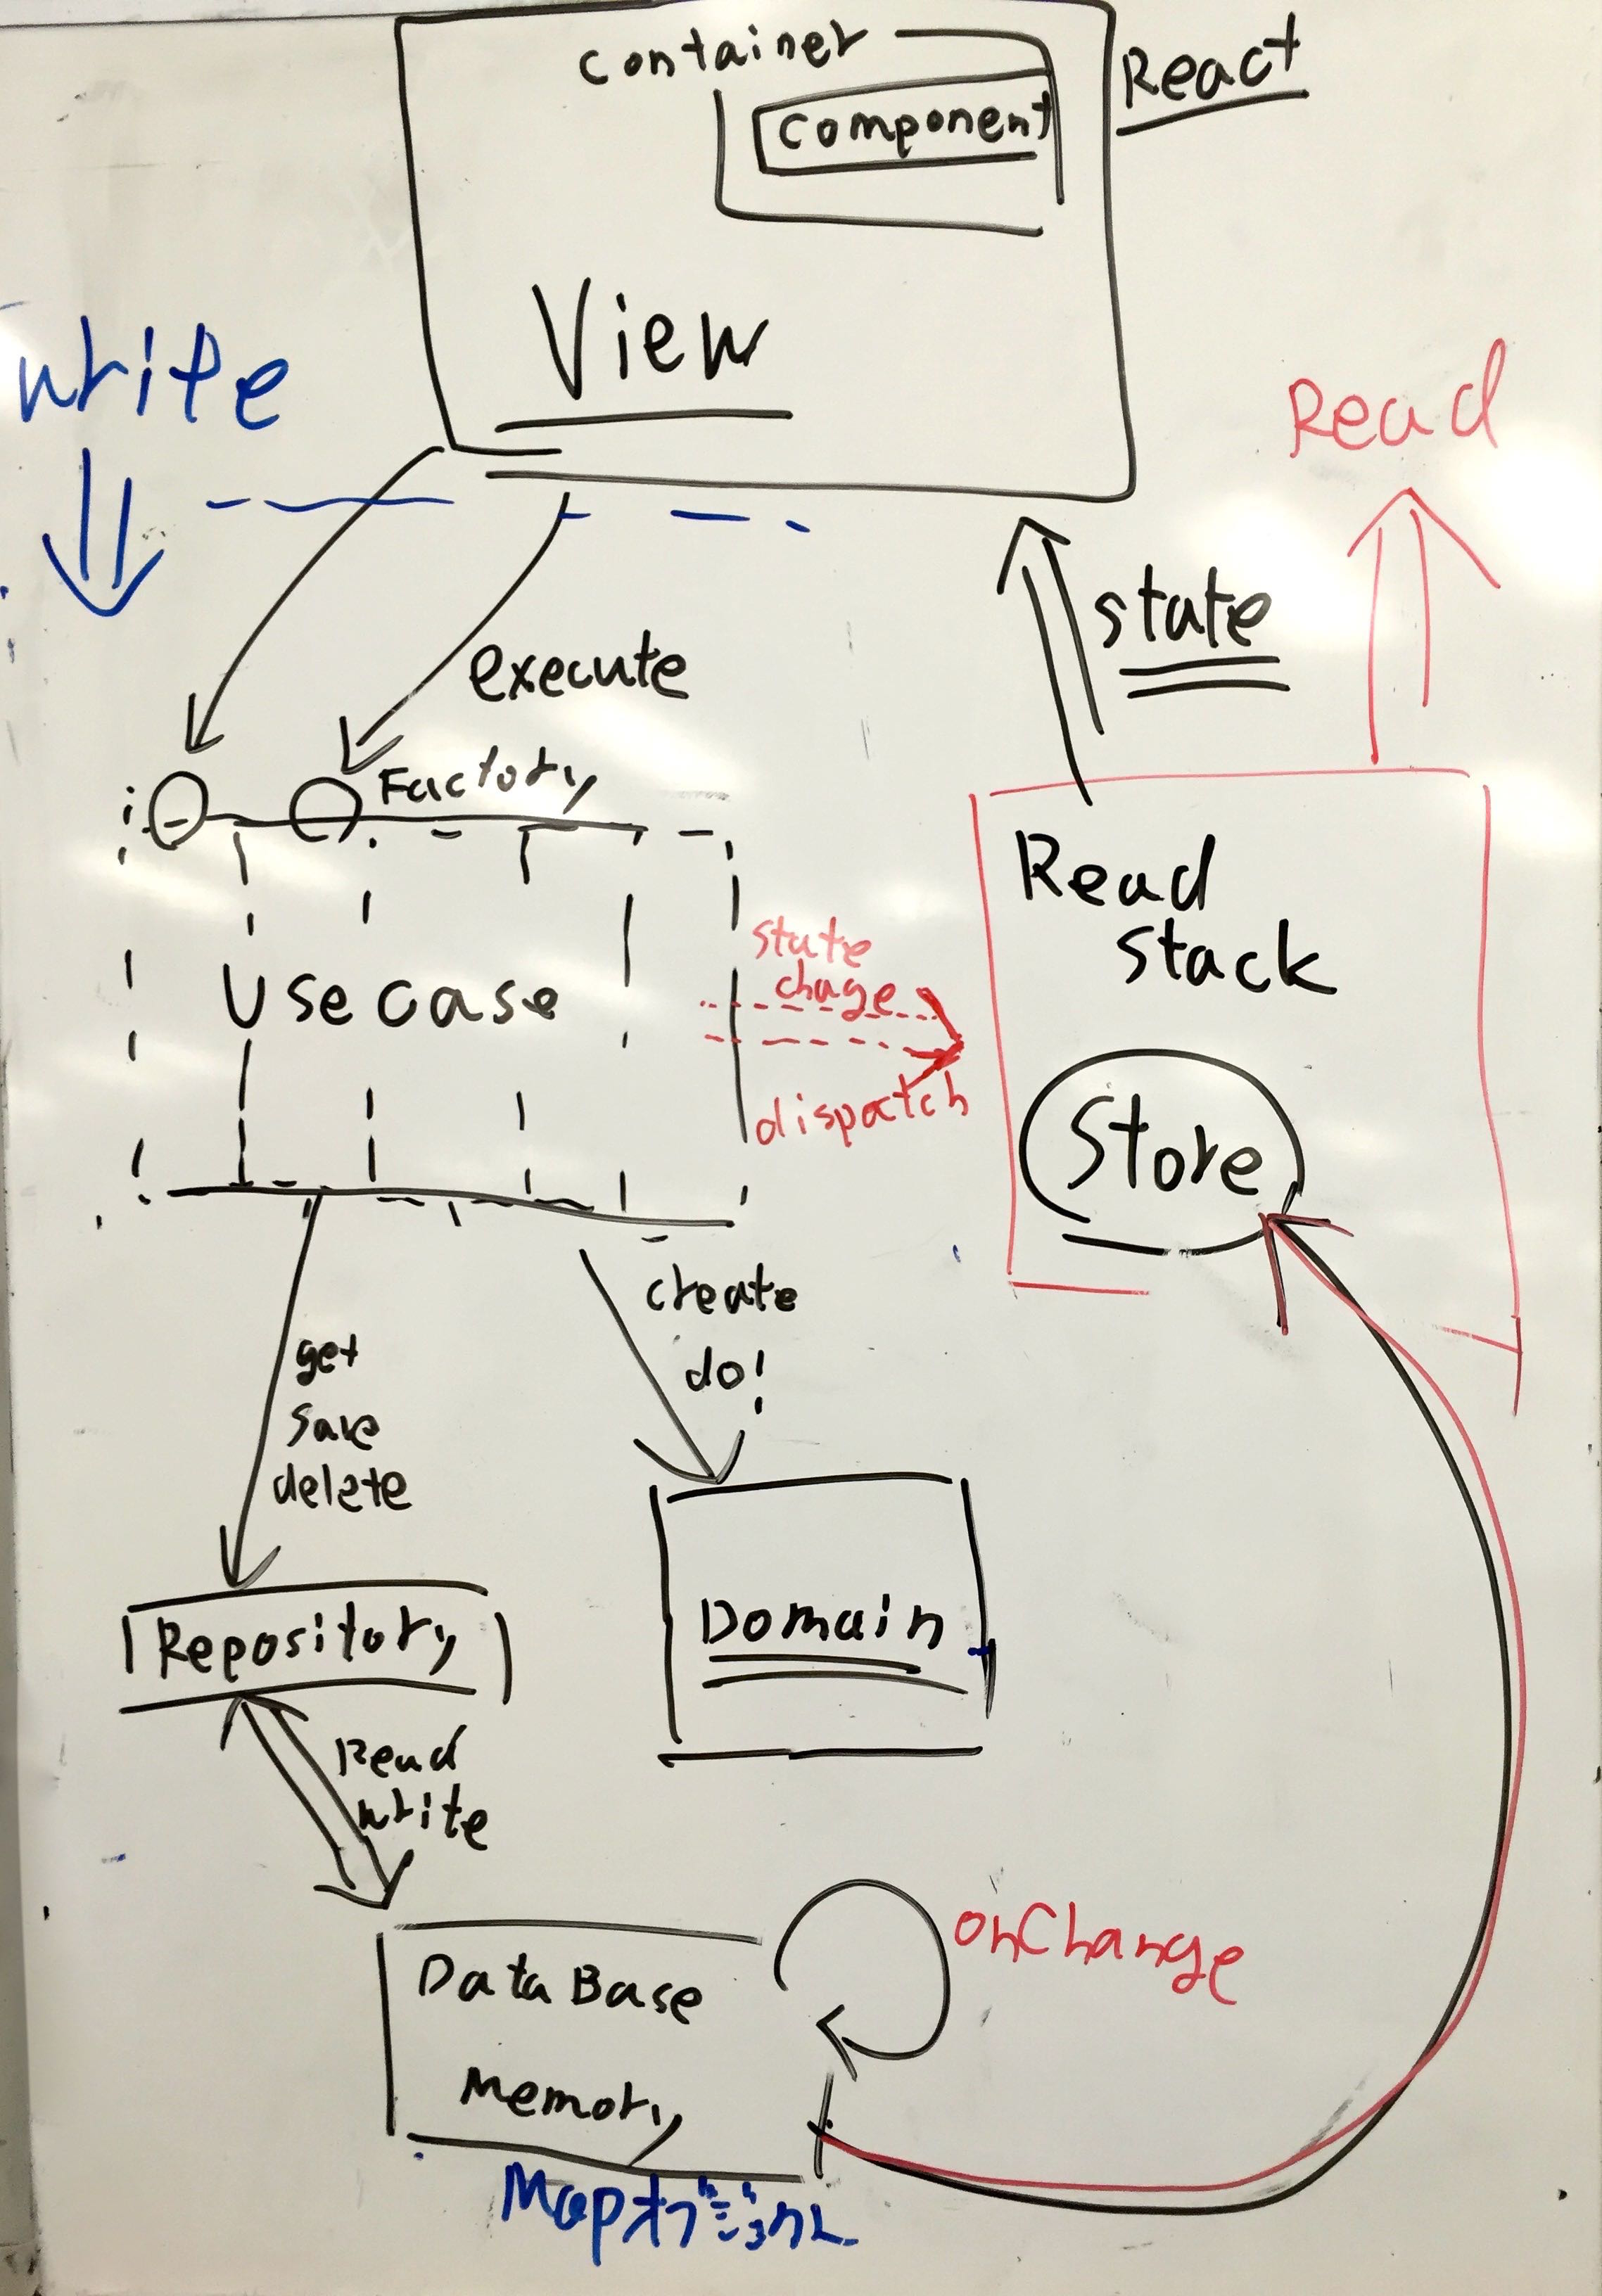 container
React
component
View
write
Read
state
execute
Factory
Read
stack
Usecase
state
chage
dispatch
Store
create
do!
get
save
delete
Repository
Domain
Read
write
onChange
DataBase
Memory
Mapオブジェクト